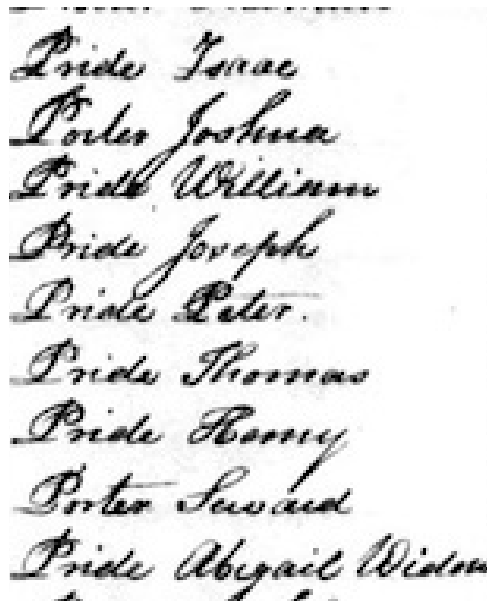 Pride Isaac
Porter Joshua
Pride William
Pride Joseph
Pride Peter.
Pride Thomas
Pride Henry
Porter Seward
Pride Abigail Widow